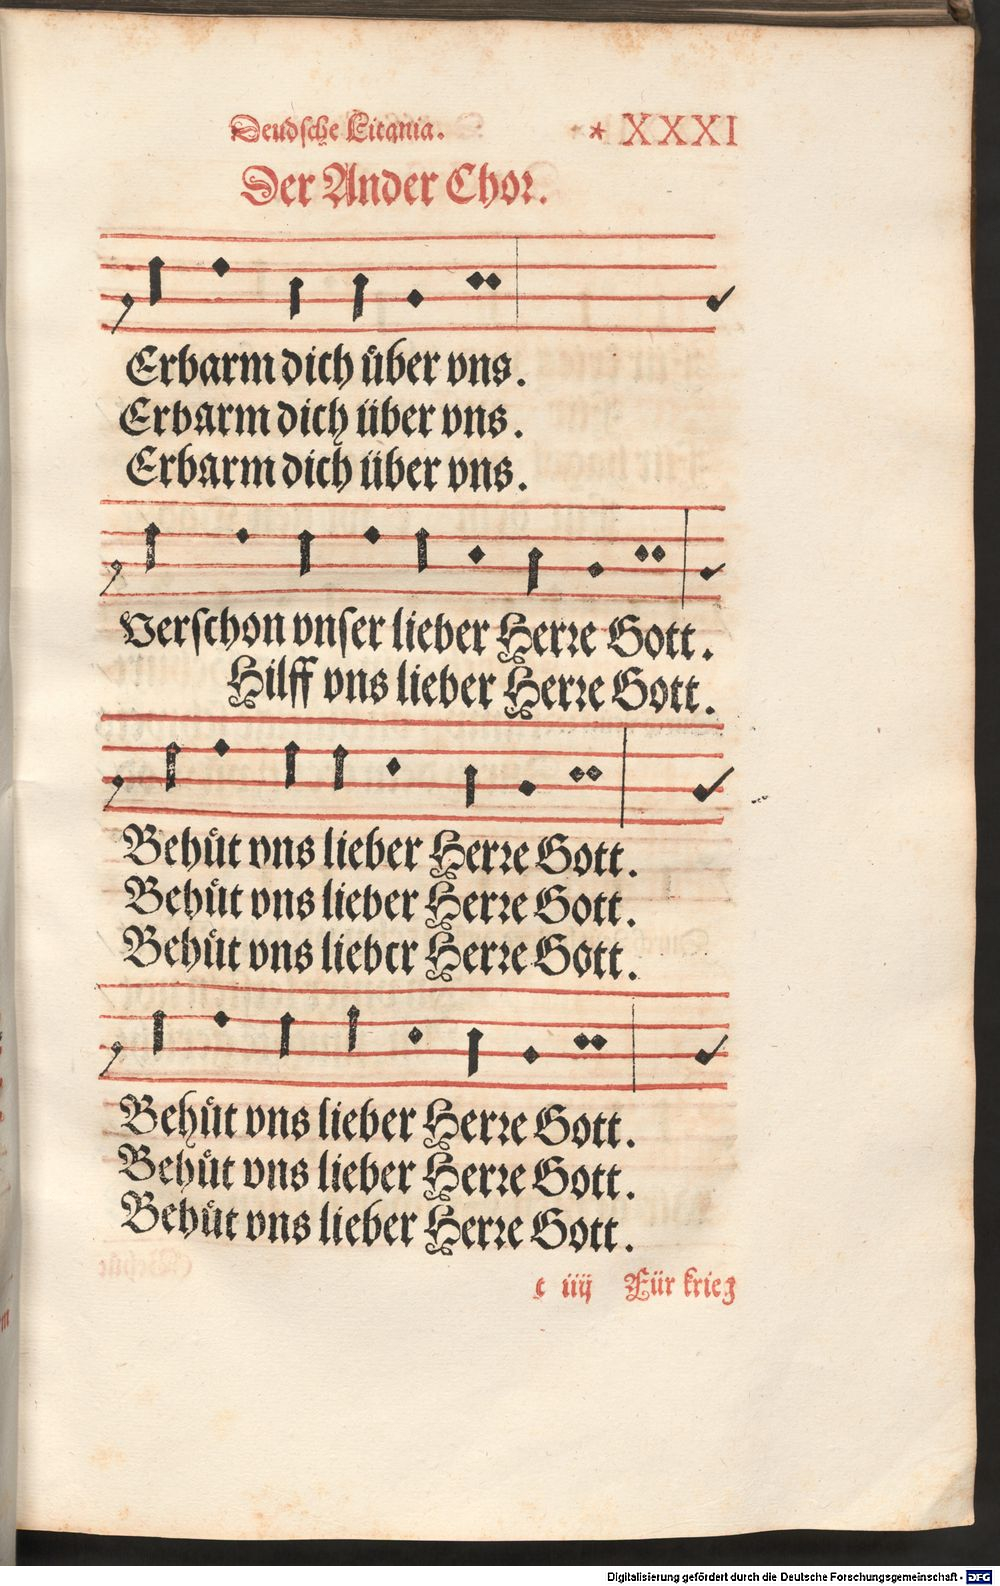 Deudsche Litania. * XXXI
Der Ander Chor.
Erbarm dich uͤber vns.
Erbarm dich über vns.
Erbarm dich über vns.
Verschon vnser lieber Herre Gott.
Hilff vns lieber Herre Gott.
Behuͤt vns lieber Herre Gott.
Behuͤt vns lieber Herre Gott.
Behuͤt vns liebcr Herre Gott.
Behuͤt vns lieber Herre Gott.
Behuͤt vns lieber Herre Gott.
Behuͤt vns lieber Herre Gott.
c iiij Für krieg
Digitalisierung gefördert durch die Deutsche Forschungsgemeinschaft - DFG